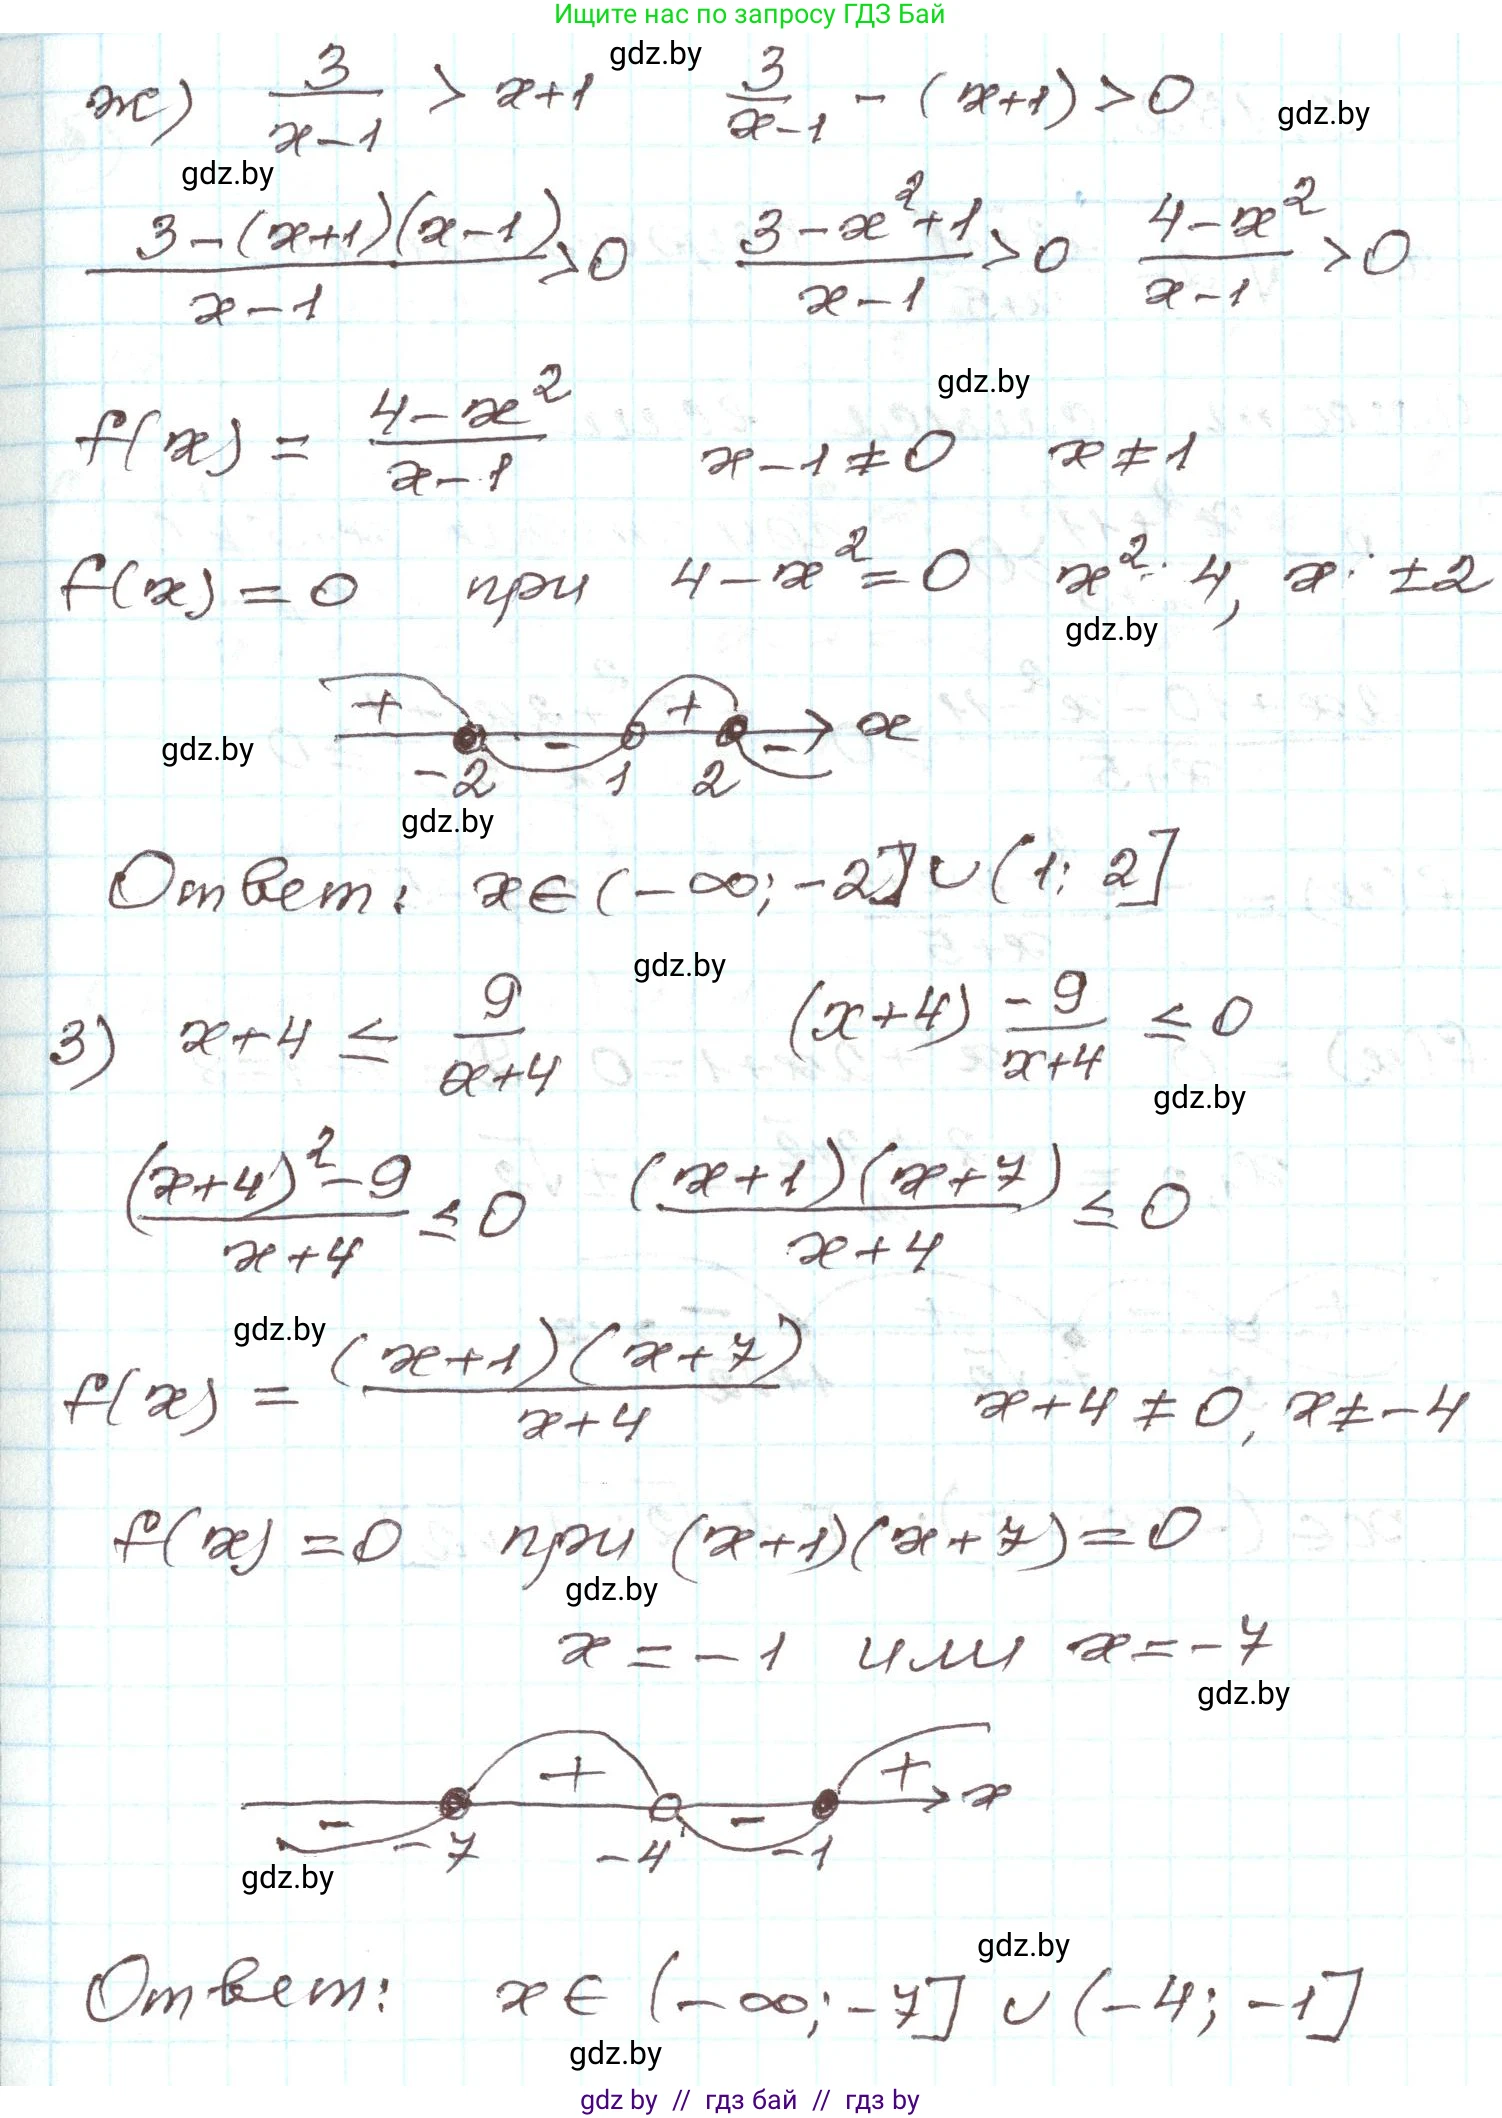 Ищите нас по запросу ГДЗ Бай
gdz.by
ж) 3/(x-1) > x+1    3/(x-1) - (x+1) > 0
gdz.by
gdz.by
(3-(x+1)(x-1))/(x-1) > 0    (3-x²+1)/(x-1) > 0    (4-x²)/(x-1) > 0
gdz.by
f(x) = (4-x²)/(x-1)    x-1≠0    x≠1
f(x) = 0 при 4-x²=0    x²= 4, x= ±2
gdz.by
+ - + - x
gdz.by
-2 1 2
gdz.by
Ответ: x∈(-∞;-2]∪(1; 2]
gdz.by
з) x+4 ≤ 9/(x+4)    (x+4) -9/(x+4) ≤ 0
gdz.by
((x+4)²-9)/(x+4) ≤ 0    ((x+1)(x+7))/(x+4) ≤ 0
gdz.by
f(x) = ((x+1)(x+7))/(x+4)    x+4≠0, x≠-4
f(x) =0 при (x+1)(x+7)=0
gdz.by
x=-1 или x=-7
gdz.by
- + - + x
-7 -4 -1
gdz.by
gdz.by
Ответ: x∈(-∞;-7]∪(-4;-1]
gdz.by
gdz by // гдз бай // гдз by